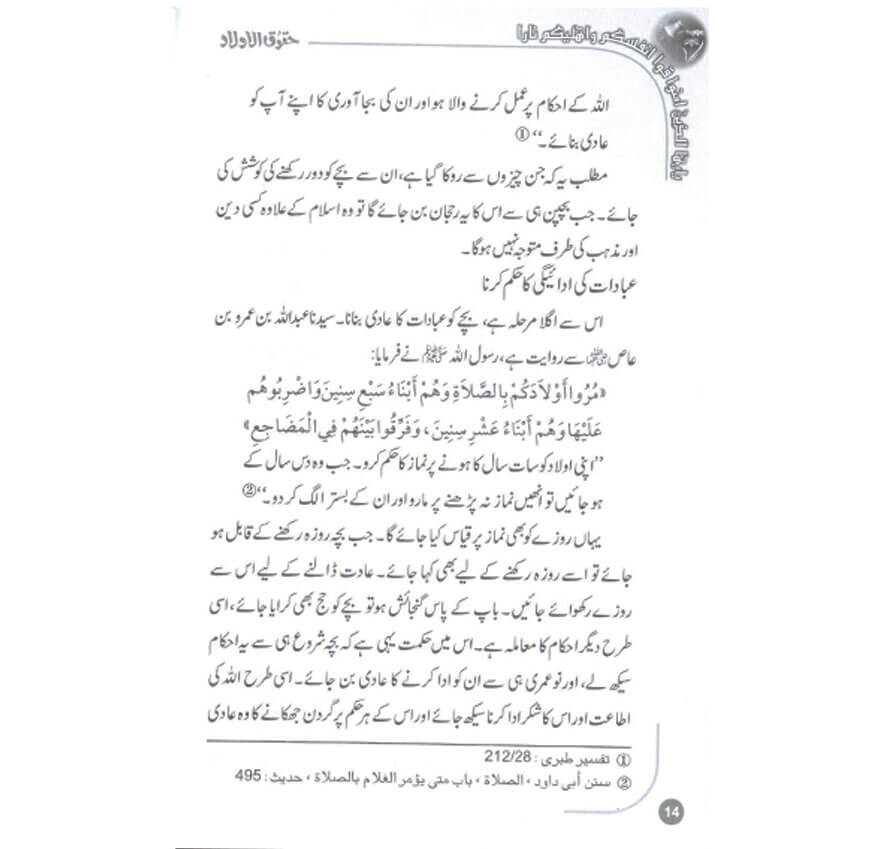 حقوق الاولاد
يايها الذين امنوا قوا انفسكم واهليكم نارا
اللہ کے احکام پر عمل کرنے والا ہو اور ان کی بجا آوری کا اپنے آپ کو
عادی بنائے۔‘‘①
مطلب یہ کہ جن چیزوں سے روکا گیا ہے، ان سے بچے کو دور رکھنے کی کوشش کی
جائے۔ جب بچپن ہی سے اس کا یہ رجحان بن جائے گا تو وہ اسلام کے علاوہ کسی دین
اور مذہب کی طرف متوجہ نہیں ہوگا۔
عبادات کی ادائیگی کا حکم کرنا
اس سے اگلا مرحلہ ہے، بچے کو عبادات کا عادی بنانا۔ سیدنا عبداللہ بن عمرو بن
عاص رضی اللہ عنہما سے روایت ہے، رسول اللہ ﷺ نے فرمایا:
«مُرُوا أَوْلَادَكُمْ بِالصَّلَاةِ وَهُمْ أَبْنَاءُ سَبْعِ سِنِينَ وَاضْرِبُوهُمْ
عَلَيْهَا وَهُمْ أَبْنَاءُ عَشْرِ سِنِينَ، وَفَرِّقُوا بَيْنَهُمْ فِي الْمَضَاجِعِ»
’’اپنی اولاد کو سات سال کا ہونے پر نماز کا حکم کرو۔ جب وہ دس سال کے
ہو جائیں تو انھیں نماز نہ پڑھنے پر مارو اور ان کے بستر الگ کر دو۔‘‘②
یہاں روزے کو بھی نماز پر قیاس کیا جائے گا۔ جب بچہ روزہ رکھنے کے قابل ہو
جائے تو اسے روزہ رکھنے کے لیے بھی کہا جائے۔ عادت ڈالنے کے لیے اس سے
روزے رکھوائے جائیں۔ باپ کے پاس گنجائش ہو تو بچے کو حج بھی کرایا جائے، اسی
طرح دیگر احکام کا معاملہ ہے۔ اس میں حکمت یہی ہے کہ بچہ شروع ہی سے یہ احکام
سیکھ لے، اور نوعمری ہی سے ان کو ادا کرنے کا عادی بن جائے۔ اسی طرح اللہ کی
اطاعت اور اس کا شکر ادا کرنا سیکھ جائے اور اس کے ہر حکم پر گردن جھکانے کا وہ عادی
① تفسير طبرى : 212/28
② سنن أبي داود ، الصلاة ، باب متى يؤمر الغلام بالصلاة ، حديث : 495
14